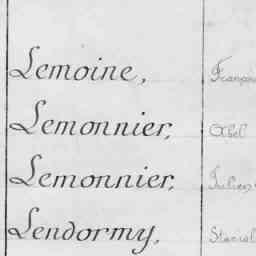 Lemoine, François
Lemonnier, Abel
Lemonnier, Julien
Lendormy,